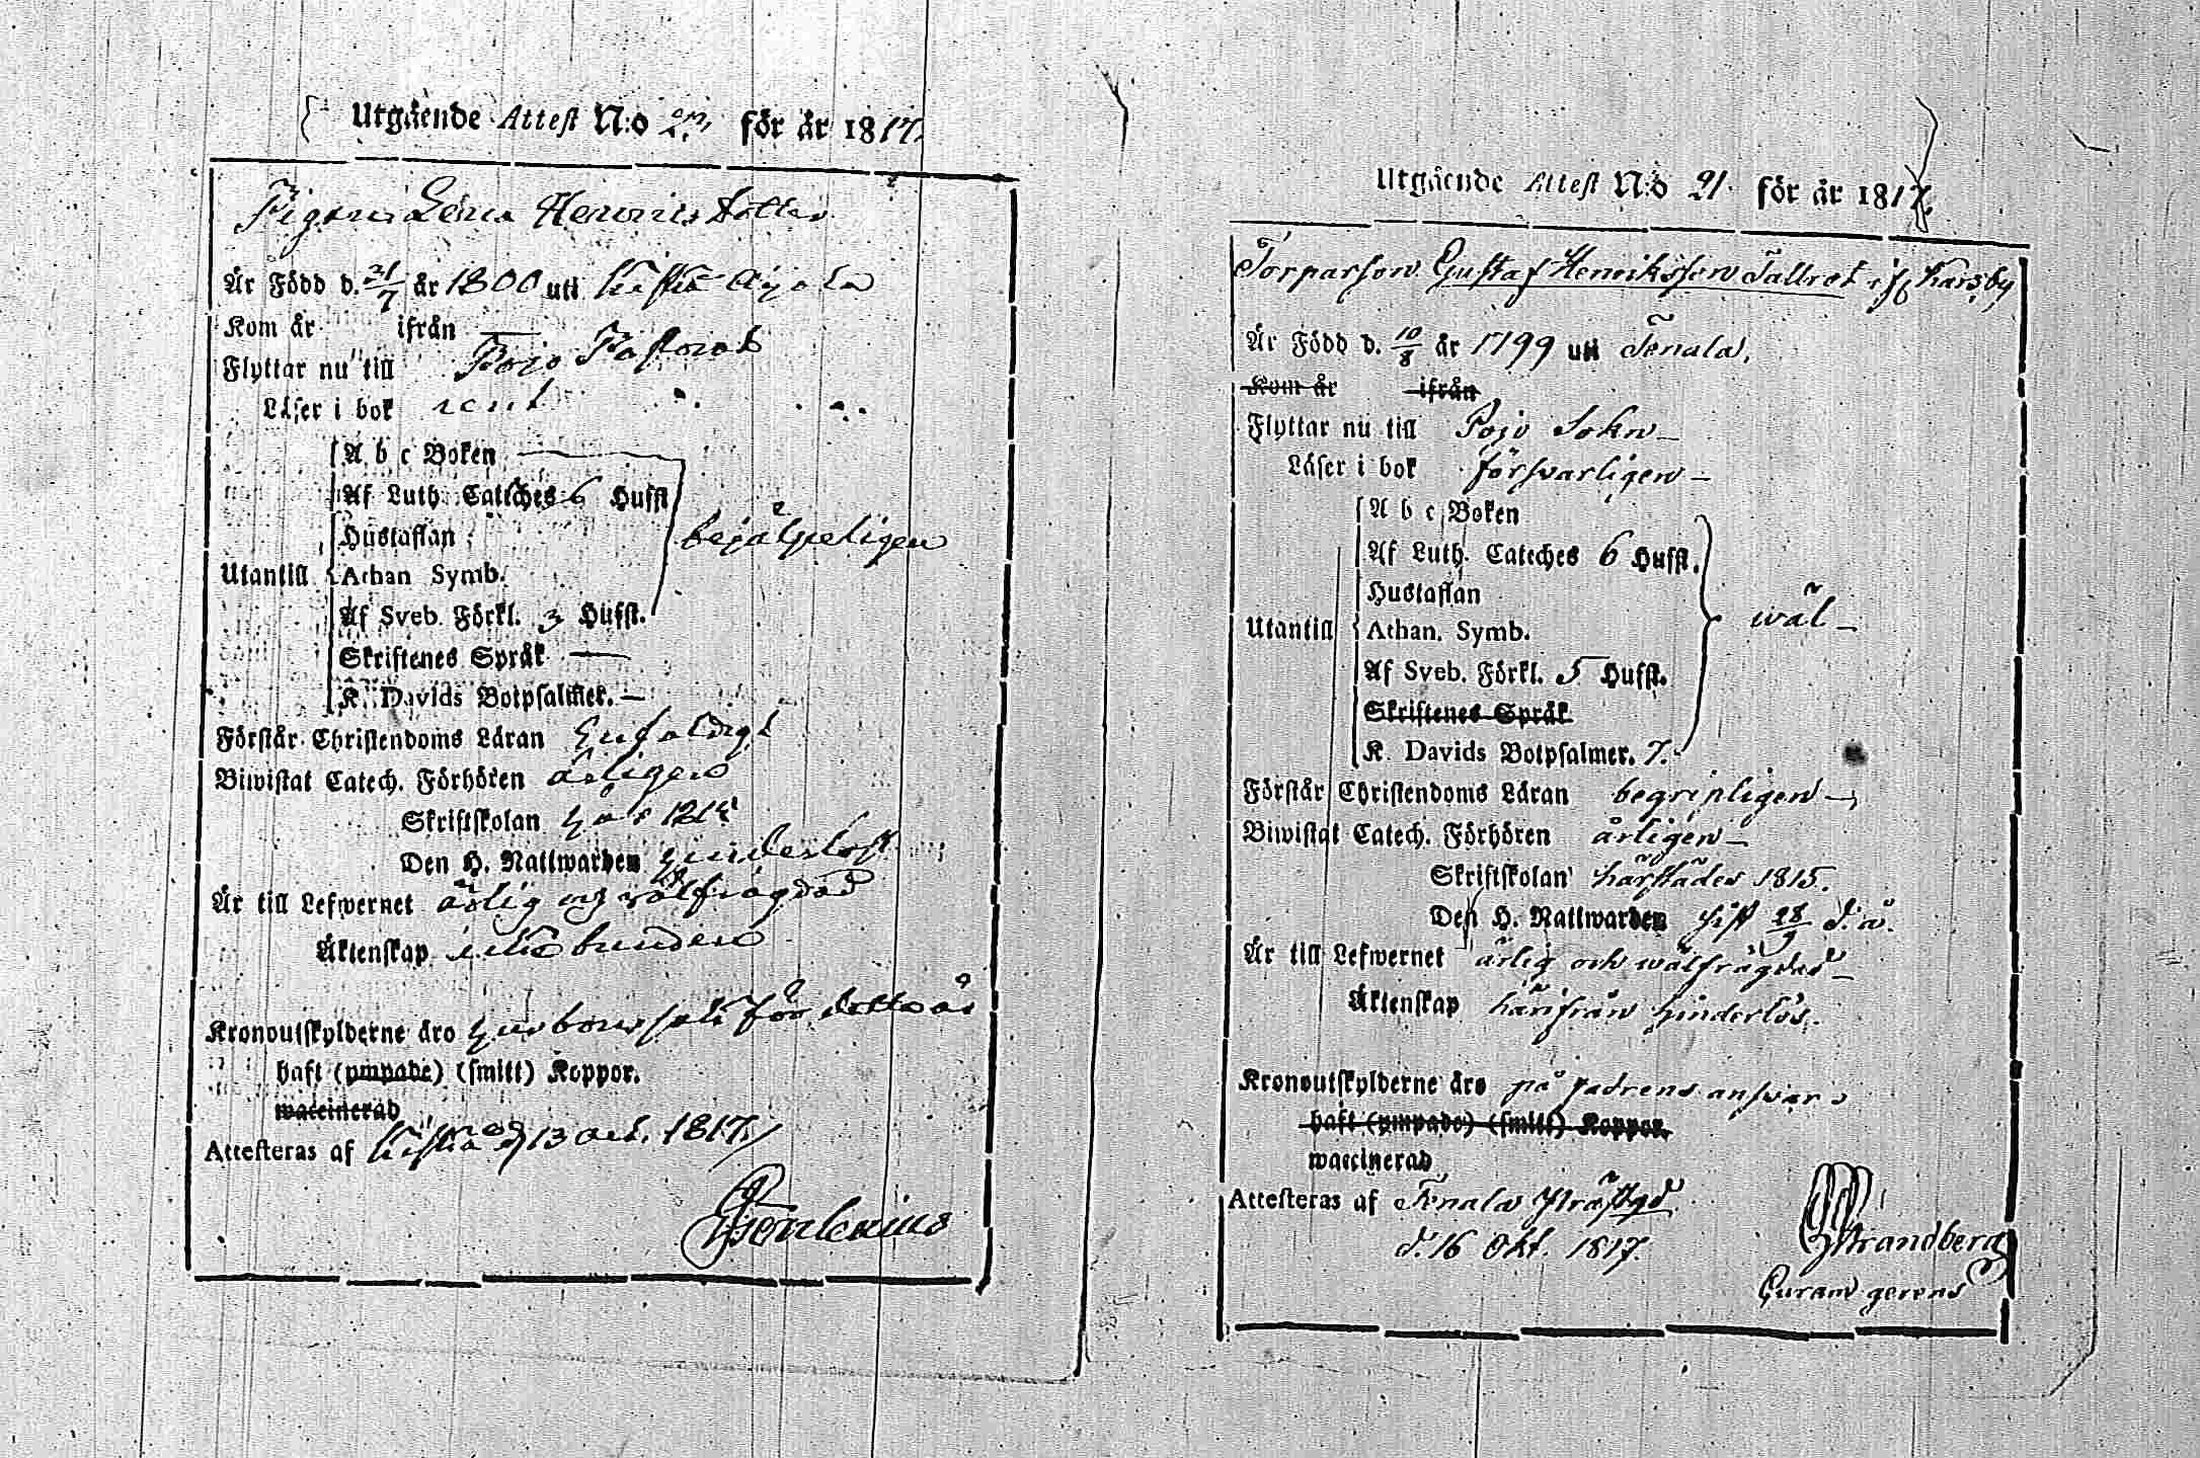 Utgående Attest N:o för år 1817.
Pigan Lena Henrics dotter
Är Född d. 21/7 år 1800 uti Kiskå
Kom år ifrån —
Flyttar nu till Pojo Pastorat
Läser i bok rent
A b c Boken
Af Luth. Catiches 6 Hufst
Hustaflan
Utantill Athan Symb.
Af Sveb. Förkl. 3 Hufst.
Skriftenes Språk —
K. Davids Botpsalmer. —
Förstår Christendoms Läran Enfaldigt
Biwistat Catech. Förhören årligen
Skriftskolan
Den H. Nattwarden hinderlöst
Är till Lefwernet ärlig och wälfrägdad
Äktenskap icke bunden
Kronoutskylderne äro för detta år
haft (ympade) (smitt) Koppor.
waccinerad
Attesteras af Kiskå 13 Oct. 1817.
Utgående Attest N:o 21. för år 1817.
Torparson Gustaf Henriksson Tallrot ifr. Karsby
Är Född d. 10/8 år 1799 uti Tenala.
Kom år ifrån
Flyttar nu till Pojo Sokn —
Läser i bok försvarligen —
A b c Boken
Af Luth. Cateches 6 Hufst.
Hustaflan
Utantill Athan. Symb. wäl —
Af Sveb. Förkl. 5 Hufst.
Skriftenes Språk
K. Davids Botpsalmer. 7.
Förstår Christendoms Läran begripligen —
Biwistat Catech. Förhören årligen —
Skriftskolan härstädes 1815.
Den H. Nattwarden sist 28/9 d. å.
Är till Lefwernet ärlig och wälfrägdad —
Äktenskap härifrån hinderlös.
Kronoutskylderne äro på fadrens answar
haft (ympade) (smitt) Koppor.
waccinerad
Attesteras af Tenala Prästgd
d. 16 Okt. 1817.
Strandberg
Curam gerens